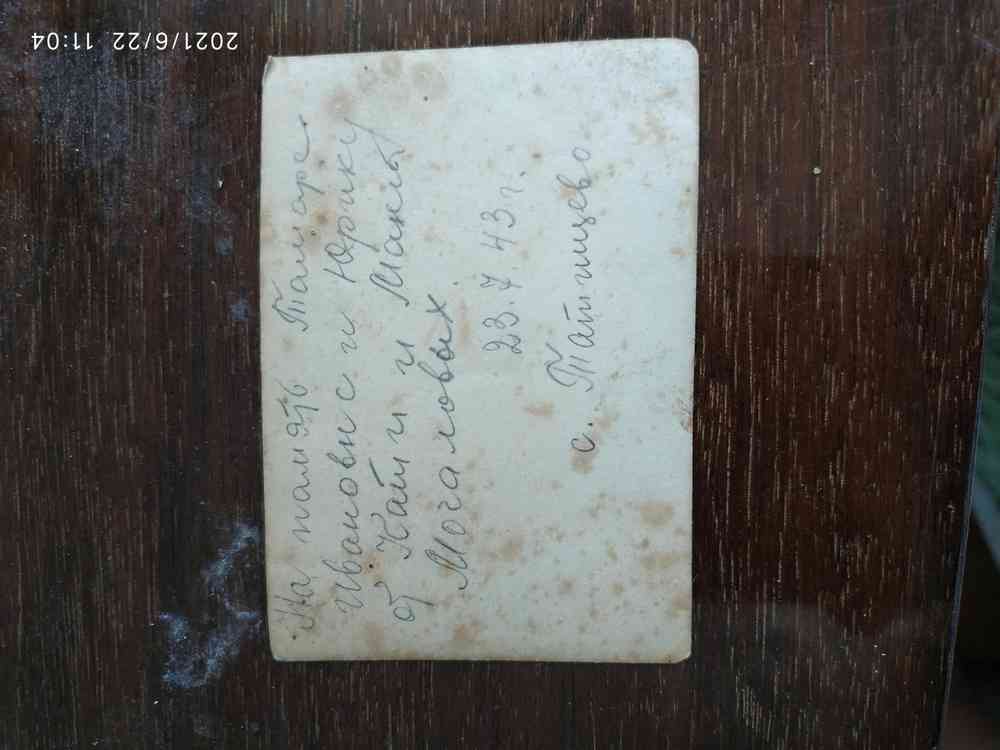 На память Тамаре
Ивановне и Юрику
от Кати и Мани
Мочаловых.
23.7.43 г.
с. Татищево.
2021/6/22 11:04